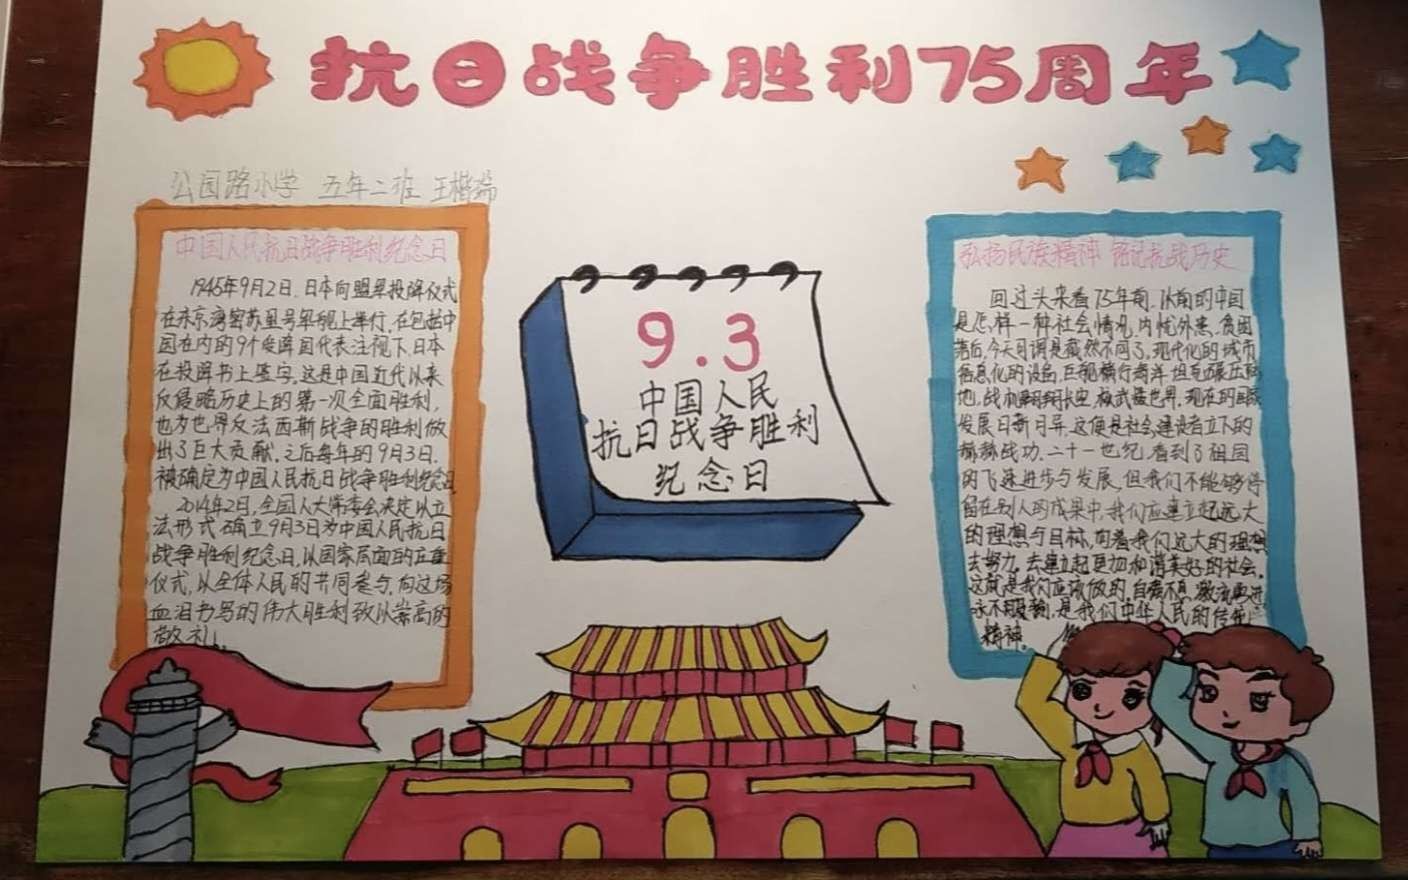 抗日战争胜利75周年
公园路小学 五年二班 王楷瑞
中国人民抗日战争胜利纪念日
1945年9月2日.日本向盟军投降仪式
在东京湾密苏里号军舰上举行.在包括中
国在内的9个受降国代表注视下.日本
在投降书上签字.这是中国近代以来
反侵略历史上的第一次全面胜利,
也为世界反法西斯战争的胜利做
出了巨大贡献.之后每年的9月3日.
被确定为中国人民抗日战争胜利纪念日
2014年2日,全国人大常委会决定以立
法形式确立9月3日为中国人民抗日
战争胜利纪念日,以国家层面的
仪式,以全体人民的共同参与,向这场
血泪书写的伟大胜利致以崇高的
敬礼!
9.3
中国人民
抗日战争胜利
纪念日
弘扬民族精神 铭记抗战历史
回过头来看75年前.以前的中国
是怎样一种社会情况,内忧外患.贫困
落后,今天可谓是截然不同了,现代化的城市
信息化的设备,巨舰横行海洋.坦克碾压陆
地,战机翱翔长空,扬武耀世界.现在的国家
发展日新月异.这便是社会建设者立下的
赫赫战功.二十一世纪.看到了祖国
的飞速进步与发展,但我们不能够停
留在别人的成果中,我们应建立起远大
的理想与目标,向着我们远大的理想
去努力,去建立起更加和谐美好的社会.
这就是我们应该做的.自强不息,
永不服输,是我们中华人民的传统
精神.